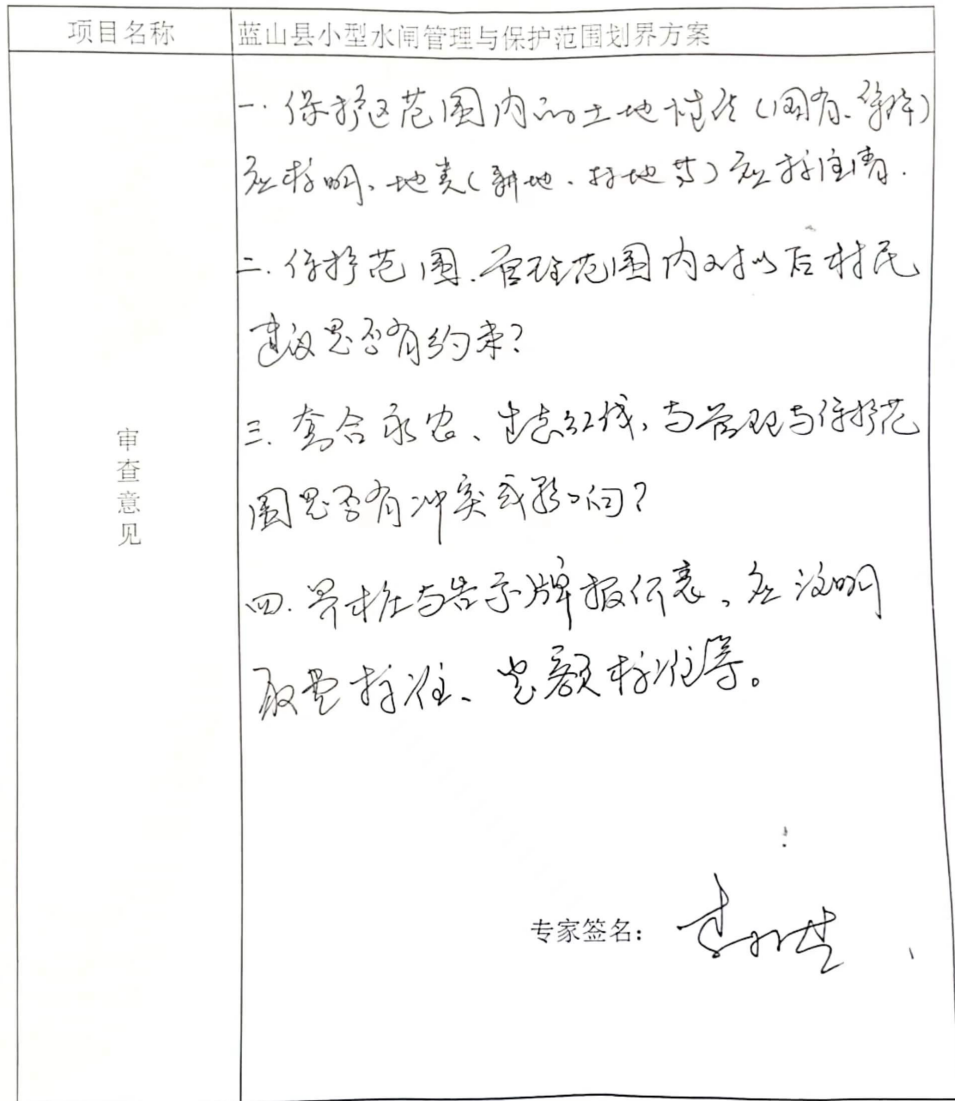 项目名称
蓝山县小型水闸管理与保护范围划界方案
审查意见
一. 保护区范围内的土地性质(国有、集体)
应标明、地类(耕地、林地等)应标注清.
二. 保护范围、管理范围内对以后村民
建设是否有约束?
三. 套合永农、生态红线, 与管理与保护范
围是否有冲突或影响?
四. 界桩与告示牌报价表, 应说明
取费标准、定额标准等。
专家签名: